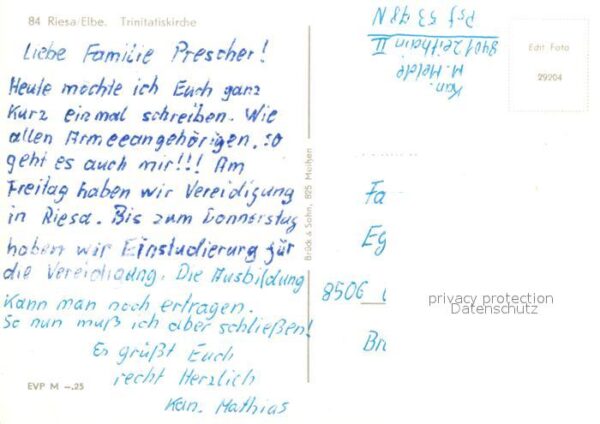 84 Riesa/Elbe. Trinitatiskirche
Liebe Familie Prescher!
Heute möchte ich Euch ganz
kurz einmal schreiben. Wie
allen Armeeangehörigen, so
geht es auch mir!!! Am
Freitag haben wir Vereidigung
in Riesa. Bis zum Donnerstag
haben wir Einstudierung für
die Vereidigung. Die Ausbildung
kann man noch ertragen.
So nun muß ich aber schließen!
Es grüßt Euch
recht Herzlich
Kan. Mathias
EVP M –.25
Brück & Sohn, 825 Meißen
Kan.
M. Melde
8401 Zeithain II
Psf 53 48 N
Edit Foto
29204
Fa
Eg
8506
Br
privacy protection
Datenschutz